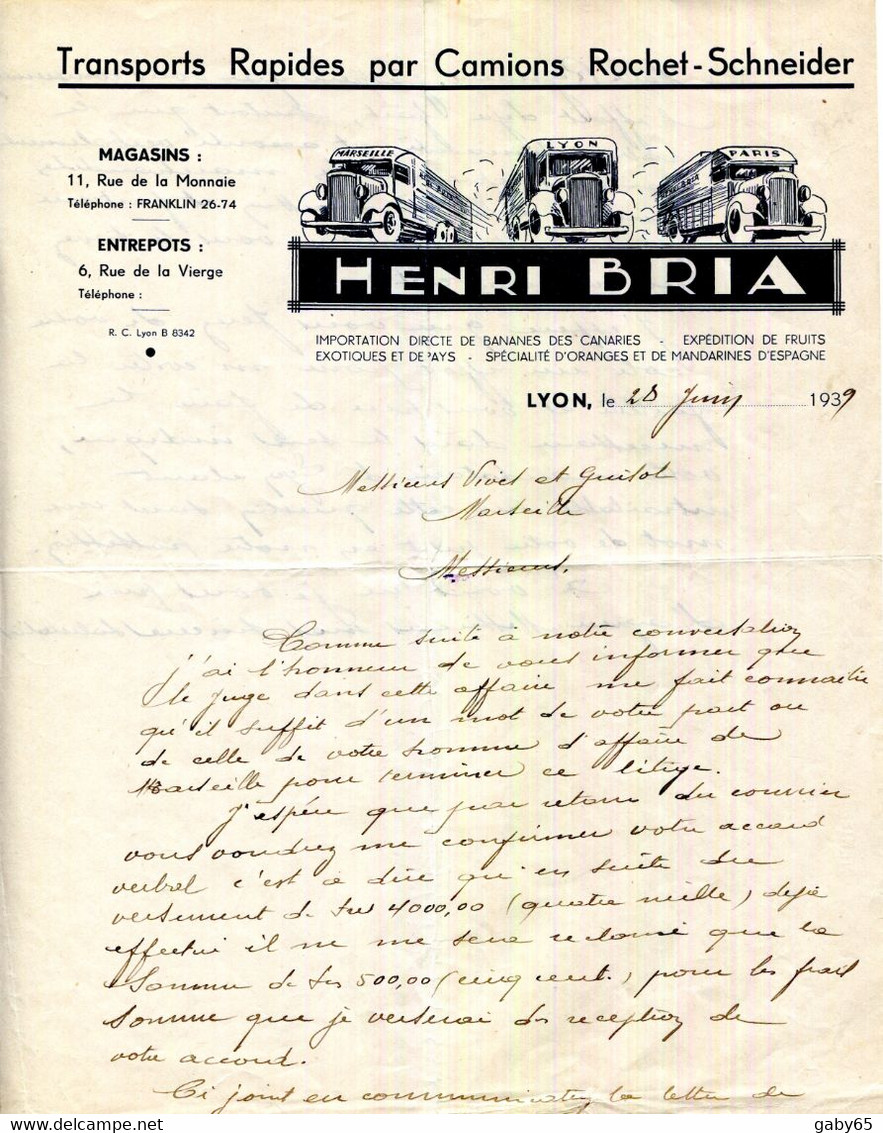 Transports Rapides par Camions Rochet-Schneider
MAGASINS :
11, Rue de la Monnaie
Téléphone : FRANKLIN 26-74
ENTREPOTS :
6, Rue de la Vierge
Téléphone :
R. C. Lyon B 8342
MARSEILLE
LYON
PARIS
HENRI BRIA
IMPORTATION DIRECTE DE BANANES DES CANARIES - EXPÉDITION DE FRUITS
EXOTIQUES ET DE PAYS - SPÉCIALITÉ D'ORANGES ET DE MANDARINES D'ESPAGNE
LYON, le 28 Juin 1939
Messieurs Vivet et Guisol
Marseille
Messieurs.
Comme suite à notre conversation
j'ai l'honneur de vous informer que
le juge dans cette affaire me fait connaitre
qu'il suffit d'un mot de votre part ou
de celle de votre homme d'affaire de
Marseille pour terminer ce litige.
J'espère que par retour du courrier
vous voudrez me confirmer votre accord
verbal c'est à dire qu'en suite du
versement de frs 4000,00 (quatre mille) déjà
effectué il ne me sera reclamé que la
somme de frs 500,00 (cinq cent.) pour les frais
somme que je verserai dès reception de
votre accord.
Ci joint en communication la lettre de
delcampe.net
gaby65